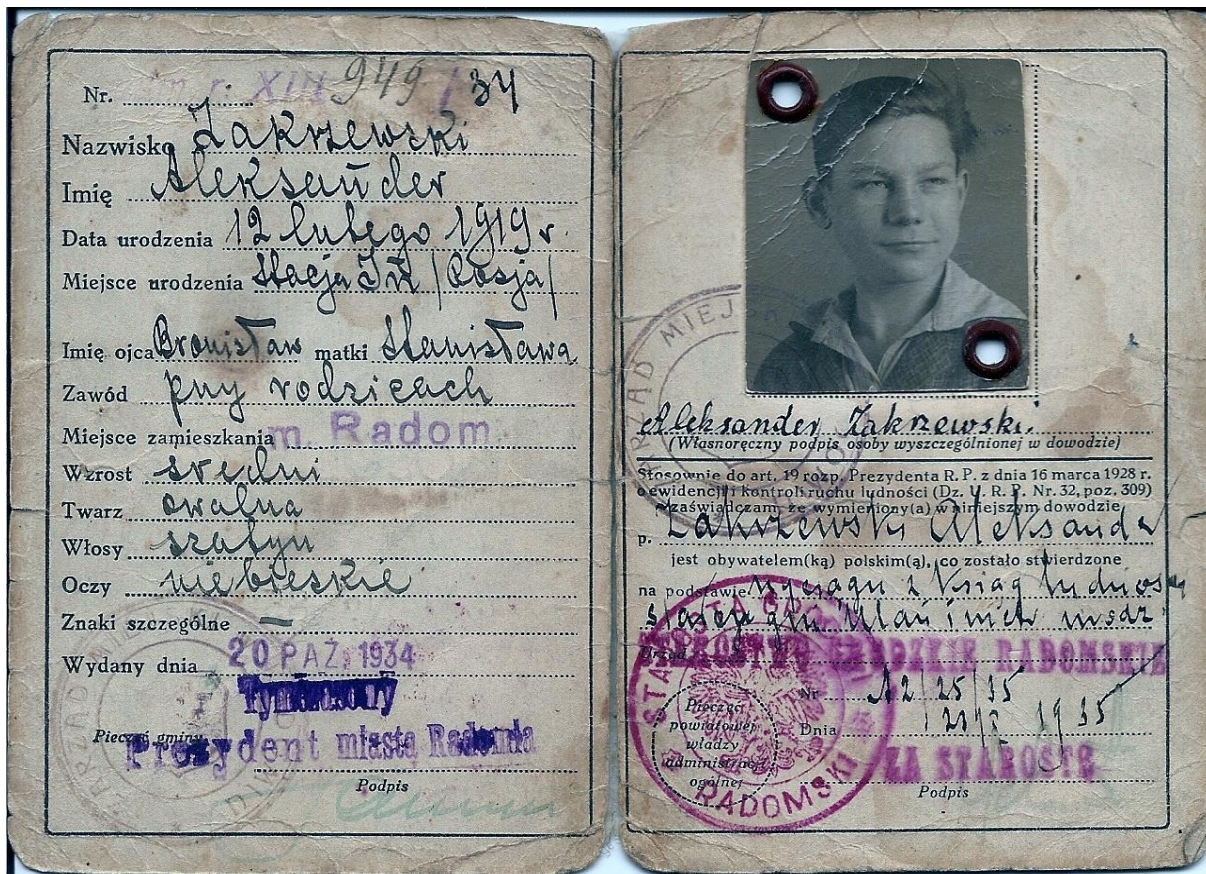 Nr. XIII 949/34
Nazwisko Zakrzewski
Imię Aleksander
Data urodzenia 12 lutego 1919 r.
Miejsce urodzenia Stacja Iń /Rosja/
Imię ojca Bronisław matki Stanisława
Zawód przy rodzicach
Miejsce zamieszkania m. Radom
Wzrost średni
Twarz owalna
Włosy szatyn
Oczy niebieskie
Znaki szczególne —
Wydany dnia 20 PAŹ. 1934
Tymczasowy
Pieczęć gminy
Prezydent miasta Radomia
Podpis
URZĄD MIEJ
Aleksander Zakrzewski.
(Własnoręczny podpis osoby wyszczególnionej w dowodzie)
Stosownie do art. 19 rozp. Prezydenta R. P. z dnia 16 marca 1928 r.
o ewidencji i kontroli ruchu ludności (Dz. U. R. P. Nr. 32, poz. 309)
zaświadczam, że wymieniony(a) w niniejszym dowodzie
p. Zakrzewski Aleksander
jest obywatelem(ką) polskim(ą), co zostało stwierdzone
na podstawie wyciągu z ksiąg ludności
stałej gm. Ulan i
Urząd STAROSTWO GRODZKIE RADOMSKIE
Nr 12/25/35
Dnia 1935
Pieczęć
powiatowej
władzy
administracji
ogólnej
STAROSTA GRODZKI
RADOMSKI
ZA STAROSTĘ
Podpis